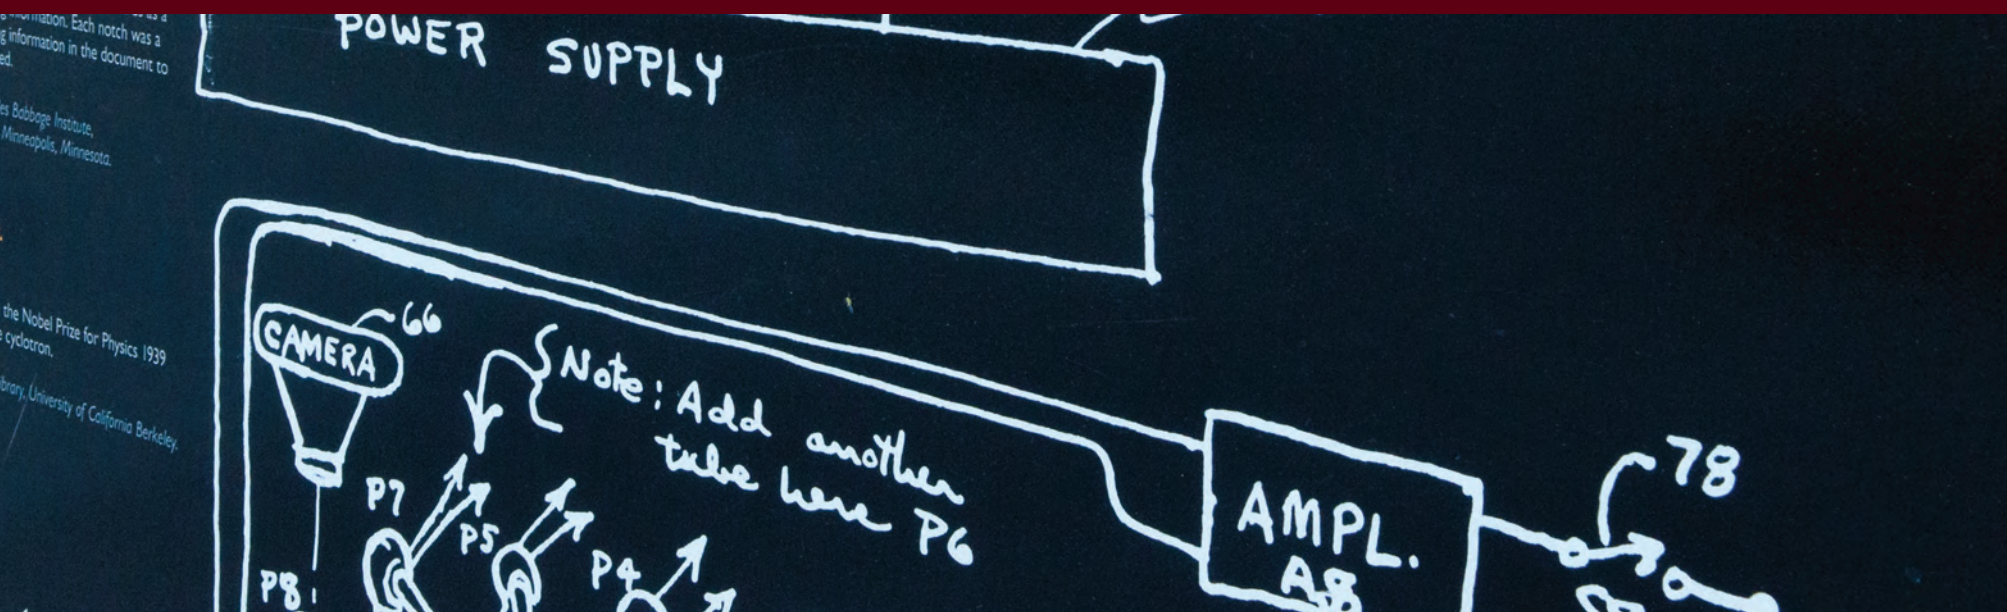 information. Each notch was a
information in the document to
Babbage Institute,
Minneapolis, Minnesota.
the Nobel Prize for Physics 1939
cyclotron.
University of California Berkeley.
POWER SUPPLY
CAMERA
66
Note: Add another
tube here P6
P7
P5
P4
P8
AMPL.
A8
78